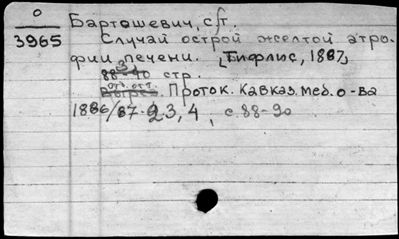 0
3965
Бартошевич, сст.
Случай острой желтой атро-
фии печени. [Тифлис, 1887]
3 стр.
отд. отт. Проток. Кавказ. мед. о-ва
1886/87. 2.3, 4, с. 88-90